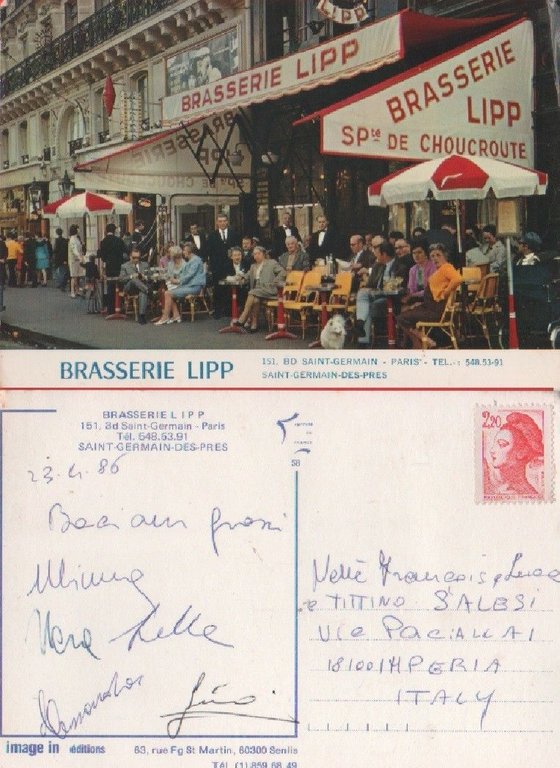 LIPP
BRASSERIE LIPP
BRASSERIE
LIPP
SPté DE CHOUCROUTE
BRASSERIE LIPP
151, BD SAINT-GERMAIN - PARIS - TEL. : 548.53-91
SAINT-GERMAIN-DES-PRES
BRASSERIE LIPP
151, Bd Saint-Germain - Paris
Tél. 548.53.91
SAINT-GERMAIN-DES-PRES
58
2,20
23.4.86
Bacioni grossi
Mimmy
Vera Stella
Nellè Francois e Luca
e TITTINO S'ALESI
Vie PACIALLAI
18100 IMPERIA
ITALY
image in éditions
63, rue Fg St Martin, 60300 Senlis
Tél. (1) 859 68 49